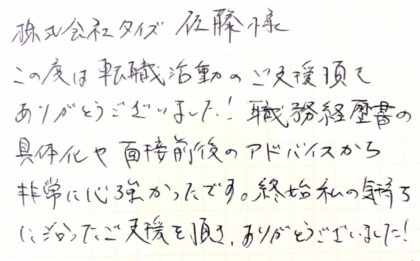 株式会社タイズ 佐藤様
この度は転職活動のご支援頂き
ありがとうございました！職務経歴書の
具体化や面接前後のアドバイスから
非常に心強かったです。終始私の気持ち
に沿ったご支援を頂き、ありがとうございました！